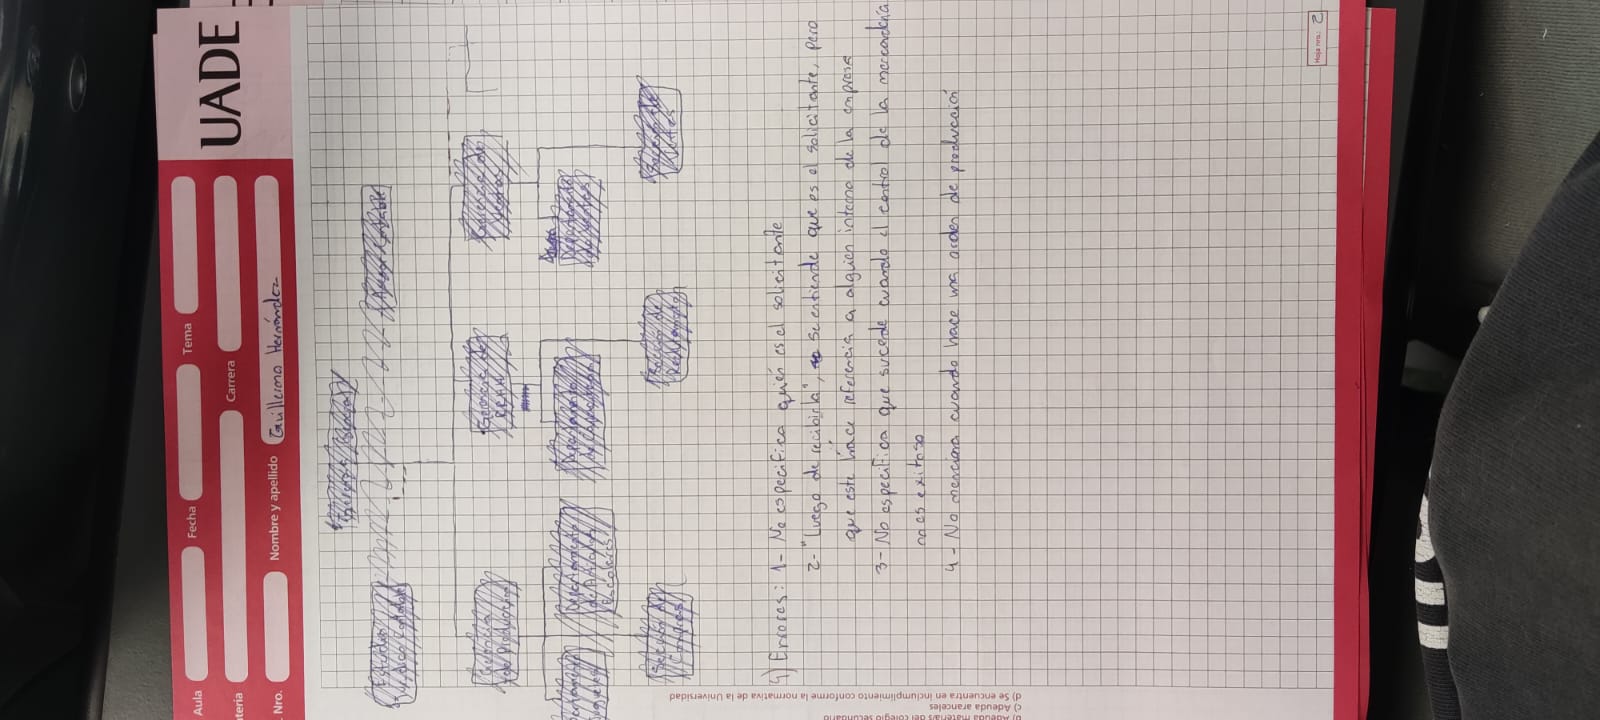 Aula
Fecha
Tema
UADE
teria
Carrera
Nro.
Nombre y apellido
Guillermo Hernández
Estudio
Jurídico Contable
Asesor Contable
Gerencia
de Producción
Gerencia de
RRHH
Gerencia de
Ventas
Departamento
de Artículos
Escolares
Departamento
Departamento
Sección de
Compras
Sección de
Sección de
4) Errores: 1- No especifica quién es el solicitante
2- "Luego de recibirla", se entiende que es el solicitante, pero
que este hace referencia a alguien interno de la empresa
3- No especifica que sucede cuando el control de la mercadería
no es exitoso
4- No menciona cuando hace una orden de producción
b) Adeuda materia/s del colegio secundario
c) Adeuda aranceles
d) Se encuentra en incumplimiento conforme la normativa de la Universidad
Hoja nro.: 2